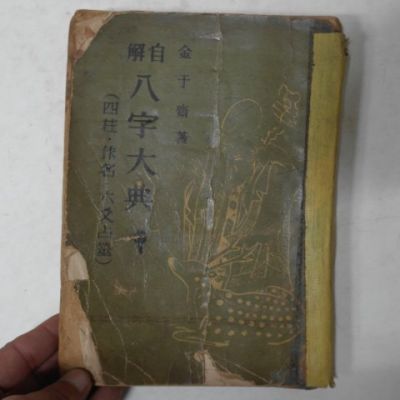 金于齋著
自解
八字大典
(四柱·作名·六爻占)